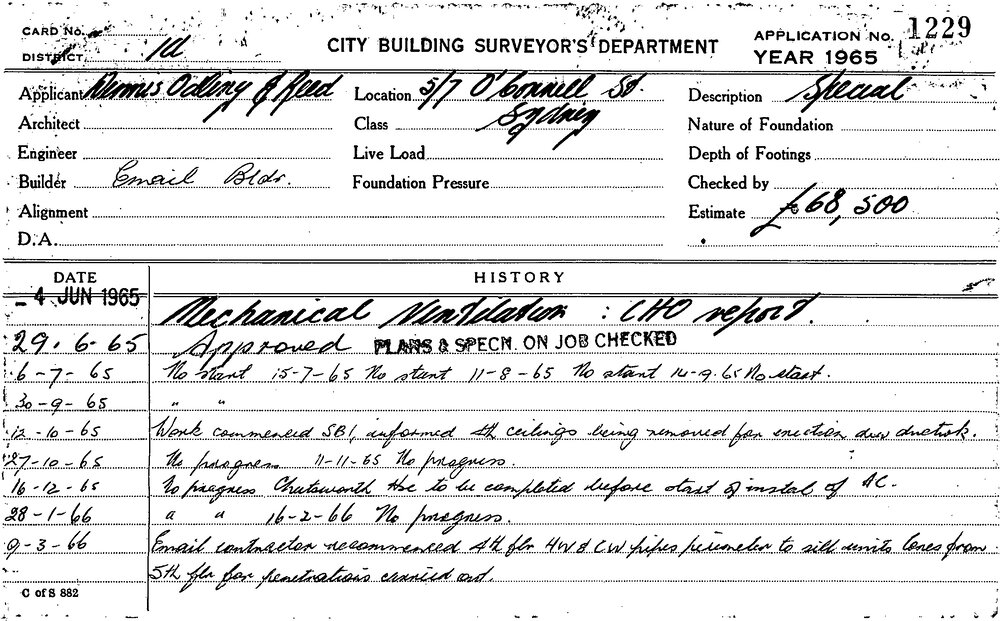 CARD No.
DISTRICT 1d
CITY BUILDING SURVEYOR'S DEPARTMENT
APPLICATION No. 1229
YEAR 1965
Applicant Dennis Odling & Reed Location 5/7 O'Connell St. Description Special
Architect Class Sydney Nature of Foundation
Engineer Live Load Depth of Footings
Builder Email Bldr. Foundation Pressure Checked by
Alignment Estimate £68,500
D.A.
DATE HISTORY
- 4 JUN 1965 Mechanical Ventilation : CHO report.
29.6.65 Approved PLANS & SPECN. ON JOB CHECKED
6-7-65 No start 15-7-65 No start 11-8-65 No start 14-9-65 No start.
30-9-65 " "
12-10-65 Work commenced SB1, informed 4th ceilings being removed for erection ductwk.
27-10-65 No progress 11-11-65 No progress.
16-12-65 No progress Chatsworth Hse to be completed before start of instal of AC.
28-1-66 " " 16-2-66 No progress.
9-3-66 Email contractor recommenced 4th flr HW & CW pipes perimeter to sill units Cores from
5th flr for penetrations carried out.
C of S 882